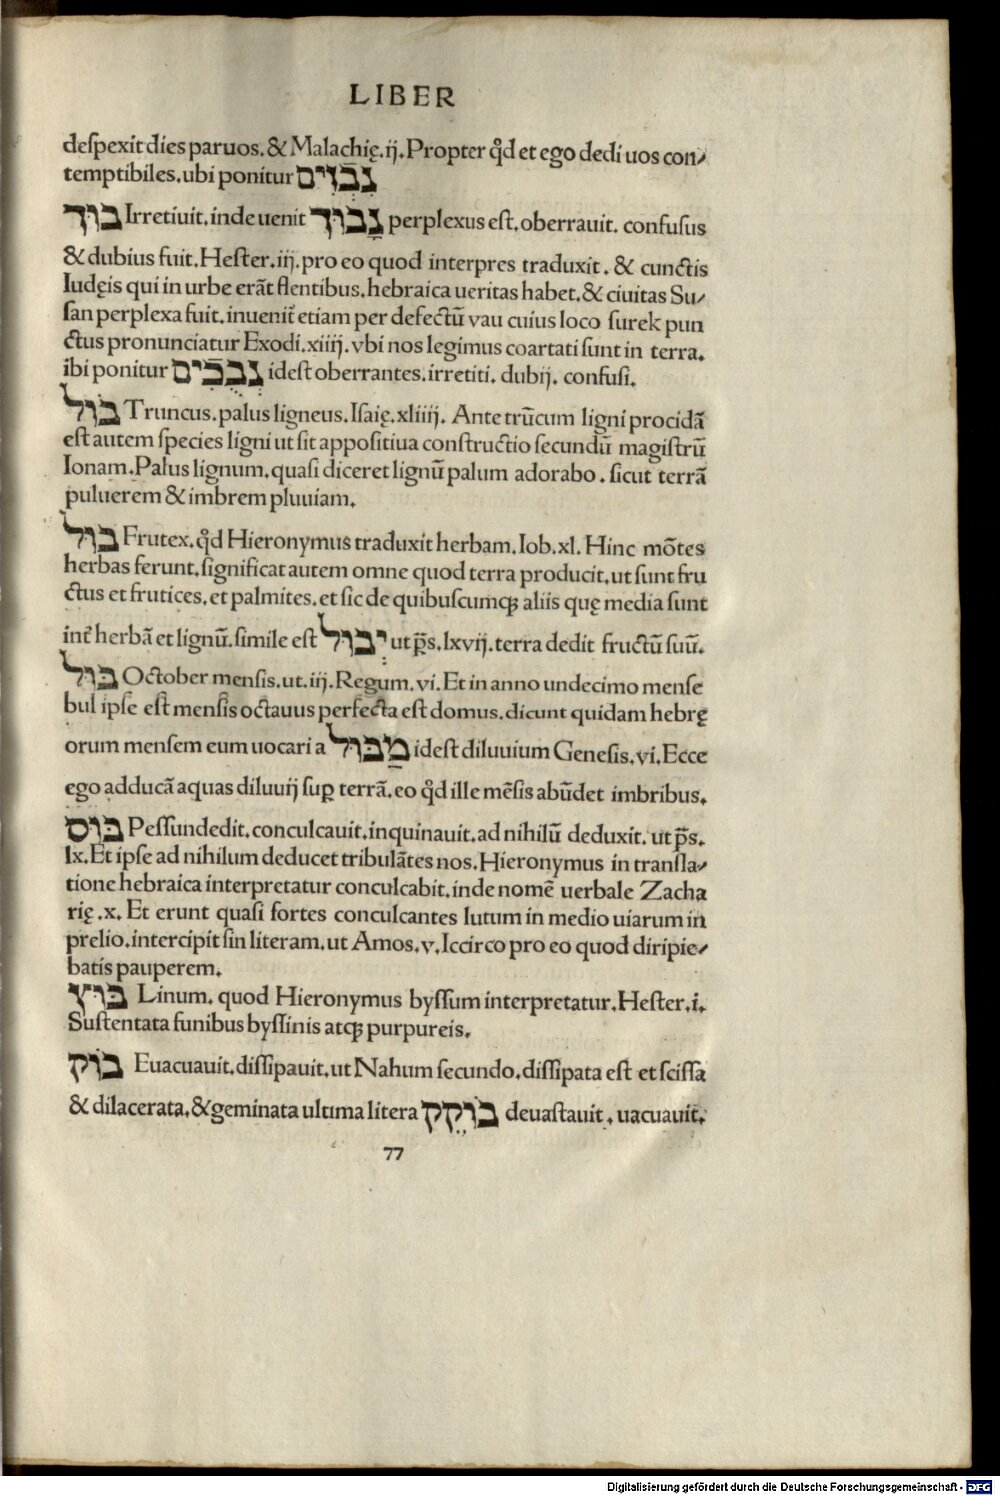 LIBER
deſpexit dies paruos. & Malachię.ij. Propter qd̉ et ego dedi uos con⸗
temptibiles. ubi ponitur נִבְזִים
בוּךְ Irretiuit. inde uenit נָבוֹךְ perplexus eſt. oberrauit. confuſus
& dubius fuit. Heſter. iij. pro eo quod interpres traduxit. & cunctis
Iudęis qui in urbe erāt flentibus. hebraica ueritas habet. & ciuitas Su⸗
ſan perplexa fuit. inuenit̄ etiam per defectū vau cuius loco ſurek pun
ctus pronunciatur Exodi. xiiij. vbi nos legimus coartati ſunt in terra.
ibi ponitur נְבֻכִים ideſt oberrantes. irretiti. dubij. confuſi.
בוּל Truncus. palus ligneus. Iſaię. xliiij. Ante trūcum ligni procidā
eſt autem ſpecies ligni ut ſit appoſitiua conſtructio ſecundū magiſtrū
Ionam. Palus lignum. quaſi diceret lignū palum adorabo. ſicut terrā
puluerem & imbrem pluuiam.
בוּל Frutex. qd̉ Hieronymus traduxit herbam. Iob. xl. Hinc mōtes
herbas ferunt. ſignificat autem omne quod terra producit. ut ſunt fru
ctus et frutices. et palmites. et ſic de quibuſcumqꝫ aliis quę media ſunt
int̄ herbā et lignū. ſimile eſt יְבוּל ut p̄s. lxvij. terra dedit fructū ſuū.
בּוּל October mensis. ut. iij. Regum. vi. Et in anno undecimo menſe
bul ipſe eſt menſis octauus perfecta eſt domus. dicunt quidam hebrę
orum menſem eum uocari a מַבּוּל ideſt diluuium Geneſis. vi. Ecce
ego adducā aquas diluuij suꝑ terrā. eo qd̉ ille mēſis abūdet imbribus.
בּוּס Peſſundedit. conculcauit. inquinauit. ad nihilū deduxit. ut p̄s.
lx. Et ipſe ad nihilum deducet tribulātes nos. Hieronymus in tranſla⸗
tione hebraica interpretatur conculcabit. inde nomē uerbale Zacha
rię. x. Et erunt quaſi fortes conculcantes lutum in medio uiarum in
prelio. intercipit ſin literam. ut Amos. v. Iccirco pro eo quod diripie⸗
batis pauperem.
בּוּץ Linum. quod Hieronymus byſſum interpretatur. Heſter. i.
Suſtentata funibus byſſinis atqꝫ purpureis.
בוּק Euacuauit. diſſipauit. ut Nahum ſecundo. diſſipata eſt et ſciſſa
& dilacerata. & geminata ultima litera בוֹקֵק deuaſtauit. uacuauit.
77
Digitalisierung gefördert durch die Deutsche Forschungsgemeinschaft - DFG